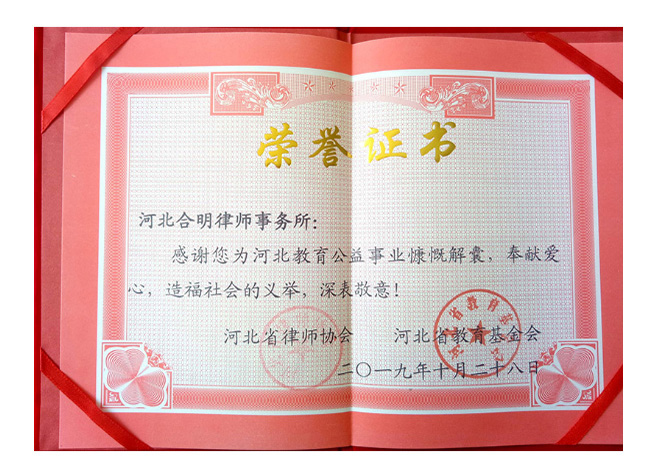 荣誉证书
河北合明律师事务所：
感谢您为河北教育公益事业慷慨解囊，奉献爱
心，造福社会的义举，深表敬意！
河北省律师协会 河北省教育基金会
二〇一九年十月二十八日